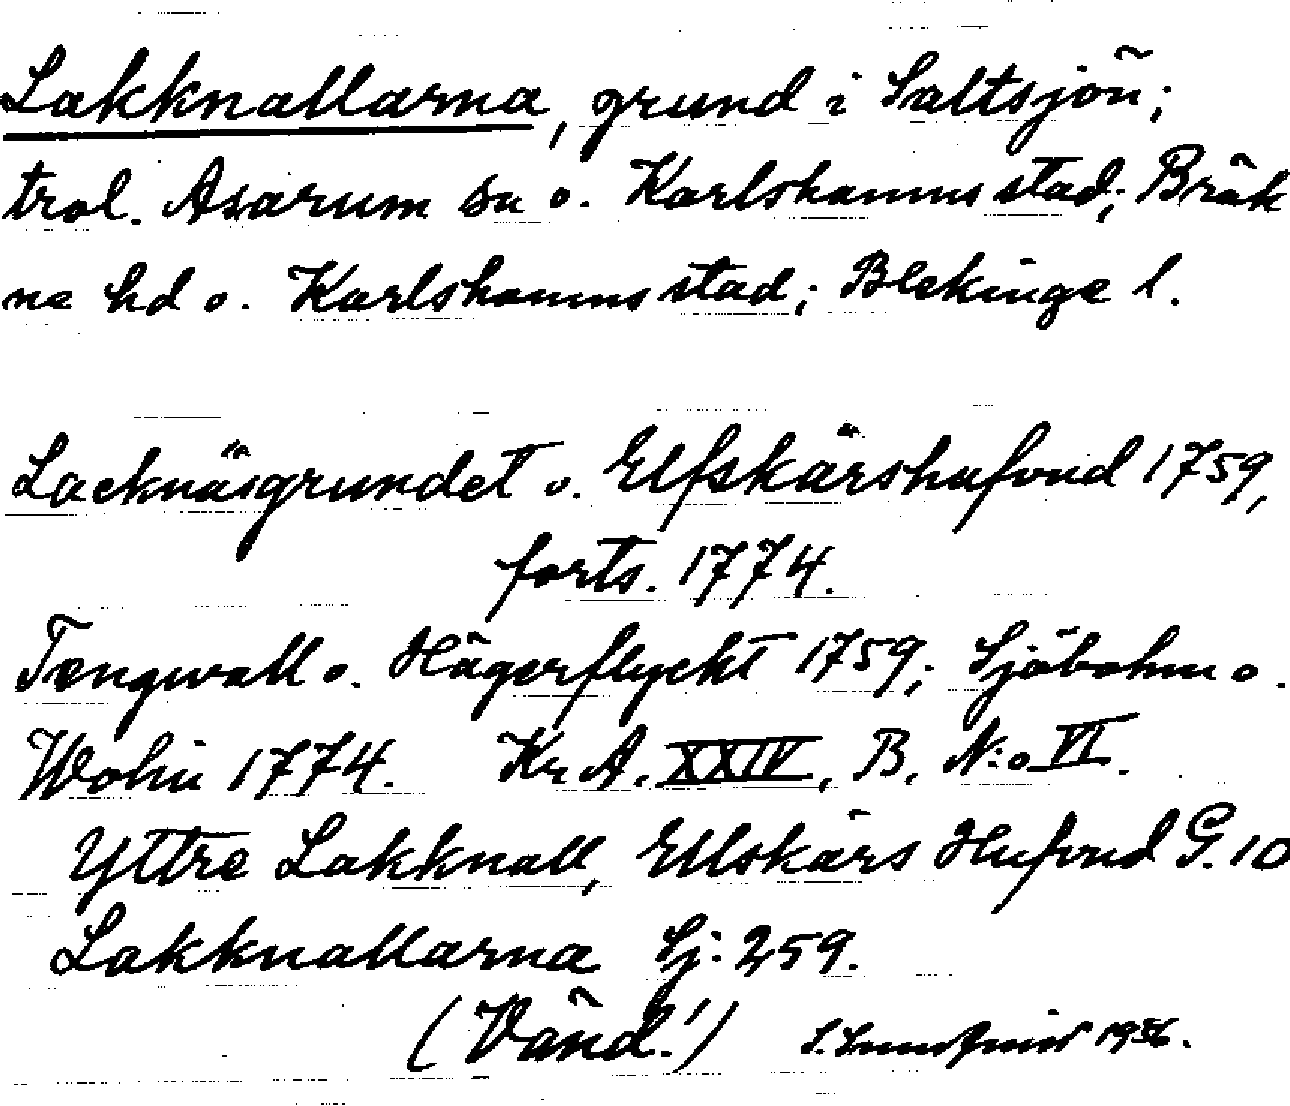 Lakknallarna, grund i Saltsjön;
trol. Asarum sn o. Karlshamns stad; Bräk
ne hd o. Karlshamns stad; Blekinge l.
Lacknäsgrundet o. Elfskärshufvud 1759,
forts. 1774.
Tengwall o. Hägerflycht 1759; Sjöbohm o.
Wohn 1774. Kr A. XXIV, B. N:o VI.
Yttre Lakknall, Ellskärs Hufvud G. 10
Lakknallarna Sj: 259.
(Vänd!) S. 1956.